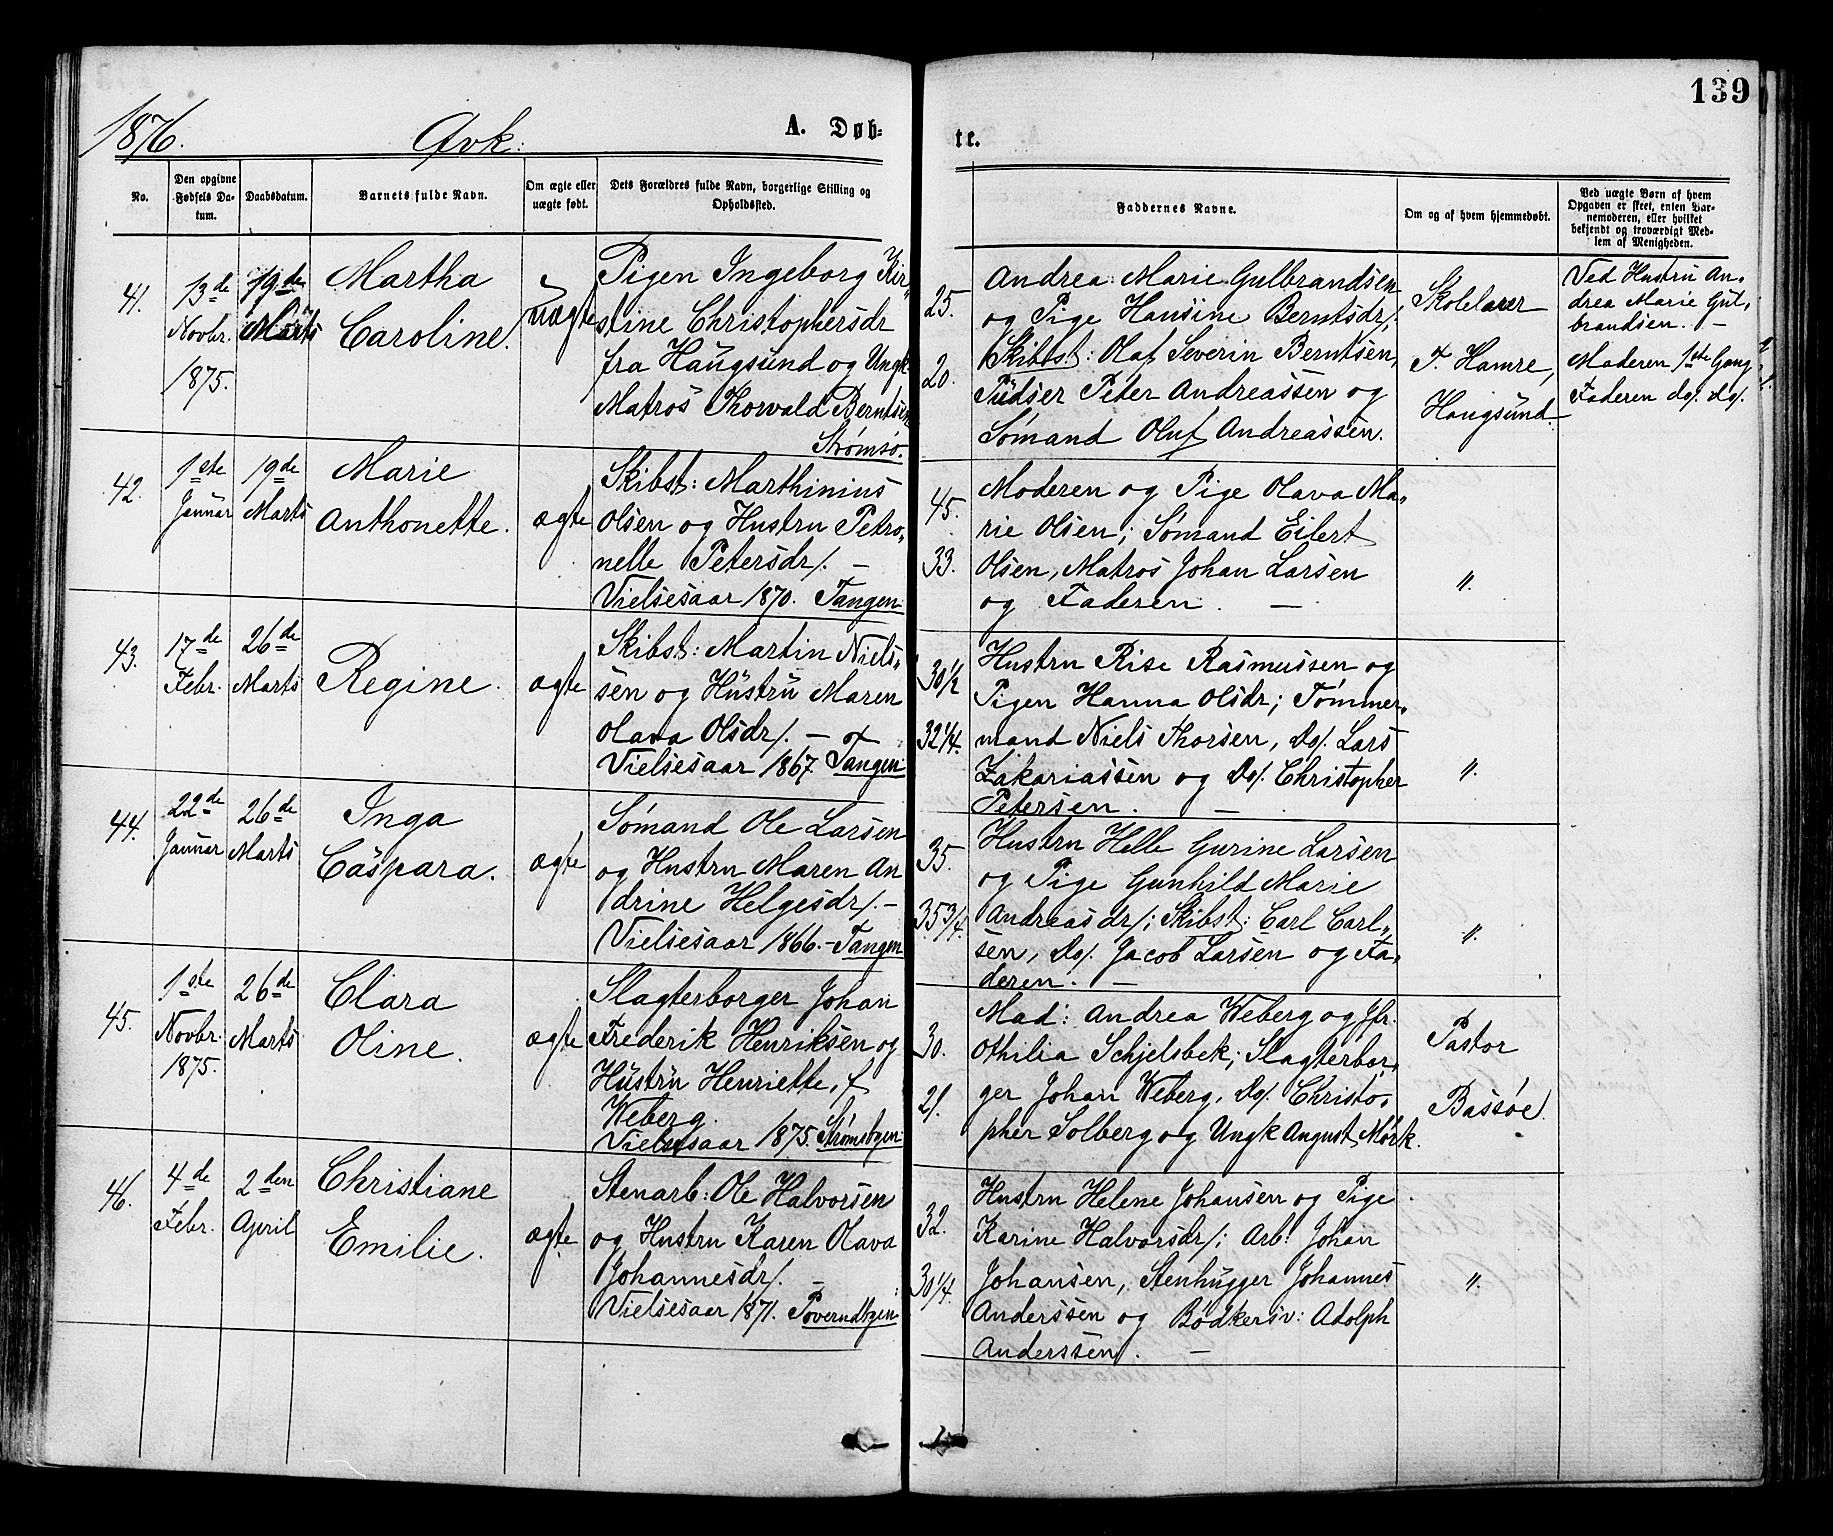 139
1876.
Qvk:
A. Døb-
te.
No.
Den opgivne
Fødsels Da-
tum.
Daabsdatum.
Barnets fulde Navn.
Om ægte eller
uægte født.
Dets Forældres fulde Navn, borgerlige Stilling og
Opholdssted.
Faddernes Navne.
Om og af hvem hjemmedøbt.
Ved uægte Børn af hvem
Opgaven er skeet, enten Bar-
nemoderen, eller hvilket
bekjendt og troværdigt Med-
lem af Menigheden.
41.
13de
Novbr.
1875.
19de
Marts
Martha
Caroline.
uægte
Pigen Ingeborg Kir-
stine Christophersdr
fra Haugsund og Ungk
Matros Thorvald Berntsen
Strømsø.
25.
20.
Andrea Marie Gulbrandsen
og Pige Hansine Berntsdr/.
Skibst: Olaf Severin Berntsen,
Pudser Peter Andreassen og
Sømand Oluf Andreassen.
Skolelærer
F. Hamre,
Haugsund.
Ved Hustru An-
drea Marie Gul-
brandsen. –
Moderen 1ste Gang
Faderen do/. do/.
42.
1ste
Januar
19de
Marts
Marie
Anthonette.
ægte
Skibst: Marthinius
Olsen og Hustru Petro-
nelle Petersdr/. –
Vielsesaar 1870. Tangen
45.
33.
Moderen og Pige Olava Ma-
rie Olsen; Sømand Eilert
Olsen, Matros Johan Larsen
og Faderen. –
"
43.
17de
Febr.
26de
Marts
Regine.
ægte
Skibst: Martin Niels-
sen og Hustru Maren
Olava Olsdr/. –
Vielsesaar 1867. Tangen
30 1/2
32 1/4.
Hustru Rise Rasmussen og
Pigen Hanna Olsdr; Tømmer-
mand Niels Thorsen, Do/. Lars
Zakariassen og Do/. Christopher
Petersen. –
"
44.
22de
Januar
26de
Marts
Inga
Caspara.
ægte
Sømand Ole Larsen
og Hustru Maren An
drine Helgesdr/. –
Vielsesaar 1866. – Tangen
35.
35 3/4.
Hustru Helle Gurine Larsen
og Pige Gunhild Marie
Andreasdr/; Skibst: Carl Carl-
sen, Do/. Jacob Larsen og Fa-
deren. –
"
45.
1ste
Novbr.
1875.
26de
Marts
Clara
Oline.
ægte
Slagterborger Johan
Frederik Henriksen og
Hustru Henriette, f
Weberg.
Vielsesaar 1875. Strømsbyen
30.
21.
Mad: Andrea Weberg og Jfr.
Othilia Schjelsbek; Slagterbor-
ger Johan Weberg, Do/. Christo-
pher Solberg og Ungk August Mørk.
Pastor
Bassøe.
46.
4de
Febr.
2den
April
Christiane
Emilie.
ægte
Stenarb: Ole Halvorsen
og Hustru Karen Olava
Johannesdr/. –
Vielsesaar 1871. Poverudbyen
32.
30 1/4.
Hustru Helene Johansen og Pige
Karine Halvorsdr/; Arb: Johan
Johansen, Stenhugger Johannes
Anderssen og Bødkersv: Adolph
Anderssen. –
"